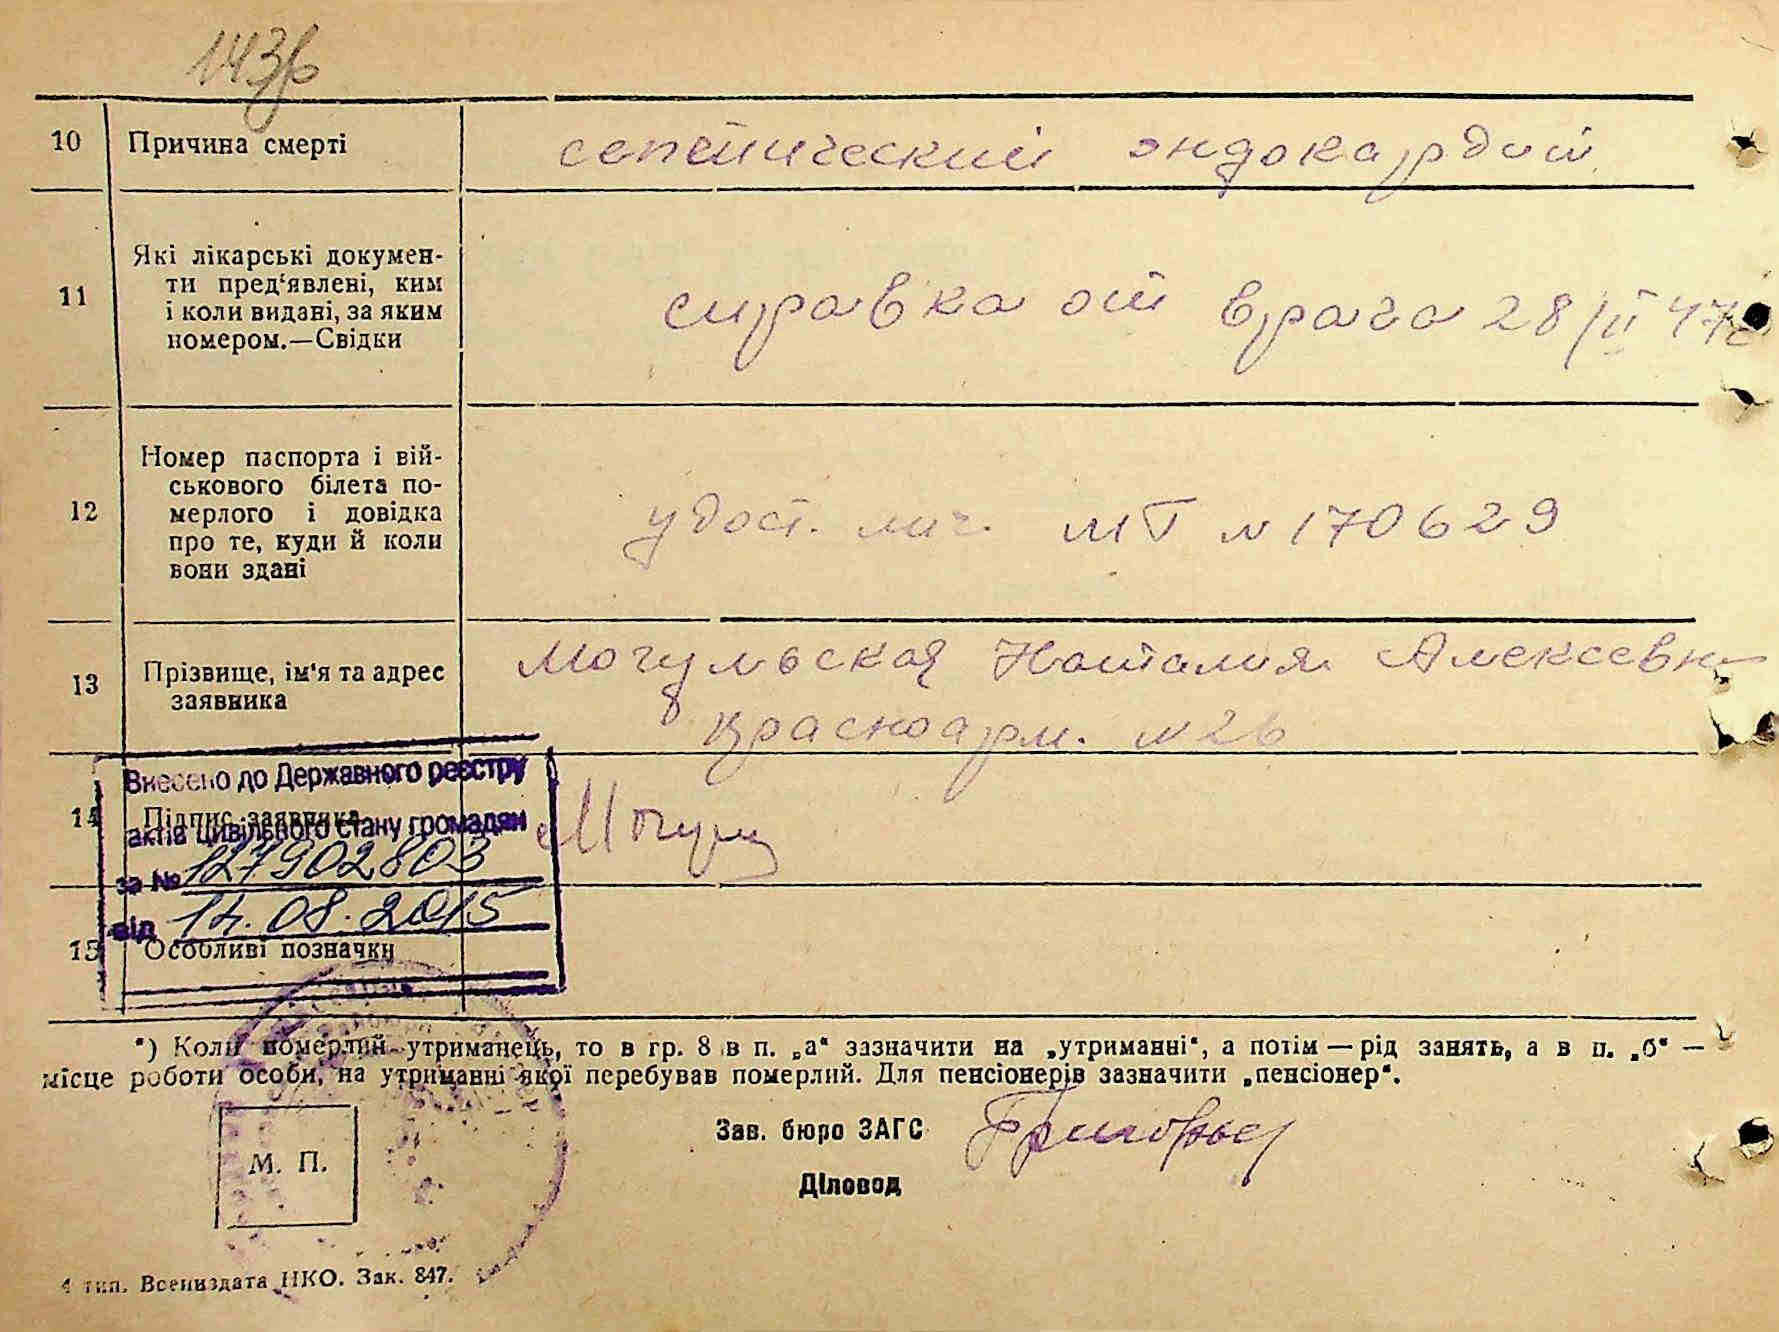 143
10 Причина смерті септический эндокардит
11 Які лікарські докумен-
ти пред'явлені, ким
і коли видані, за яким
номером.—Свідки
справка от врача 28/II 47г
12 Номер паспорта і вій-
ськового білета по-
мерлого і довідка
про те, куди й коли
вони здані
удост. лич. МТ N 170629
13 Прізвище, ім'я та адрес
заявника
Могульская Наталия Алексеевн
Красноарм. N 26
Внесено до Державного реєстру
14 Підпис заявника
актів цивільного стану громадян
за № 127902803
від 14.08.2015
15 Особливі позначки
*) Коли померлий утриманець, то в гр. 8 в п. „а“ зазначити на „утриманні“, а потім — рід занять, а в п. „б“ —
місце роботи особи, на утриманні якої перебував померлий. Для пенсіонерів зазначити „пенсіонер“.
Зав. бюро ЗАГС
М. П.
Діловод
4 тип. Воениздата НКО. Зак. 847.